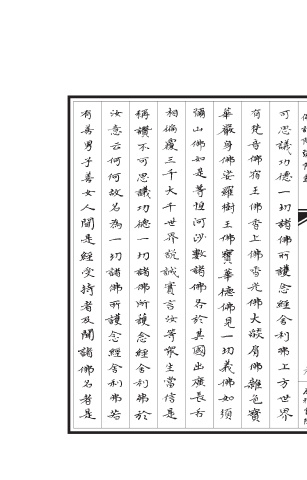 可思議功德一切諸佛所護念經舍利弗上方世界
有梵音佛宿王佛香上佛香光佛大燄肩佛雜色寶
華嚴身佛娑羅樹王佛寶華德佛見一切義佛如須
彌山佛如是等恒河沙數諸佛各於其國出廣長舌
相徧覆三千大千世界說誠實言汝等眾生當信是
稱讚不可思議功德一切諸佛所護念經舍利弗於
汝意云何何故名為一切諸佛所護念經舍利弗若
有善男子善女人聞是經受持者及聞諸佛名者是